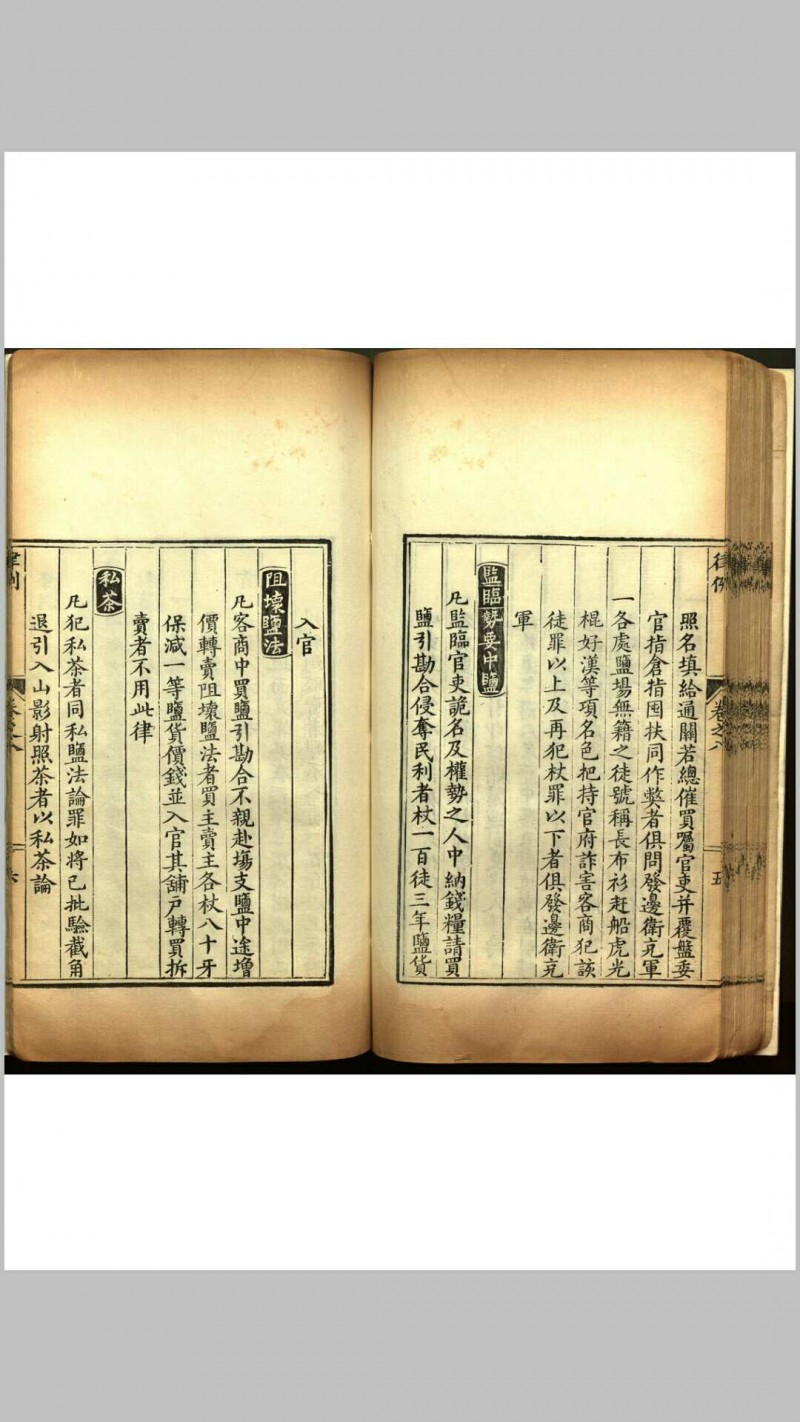 律例
卷之八
五
照名填給通關若總催買囑官吏并覆盤委
官指倉指囤扶同作弊者俱問發邊衛充軍
一各處鹽場無籍之徒號稱長布衫赶船虎光
棍好漢等項名色把持官府詐害客商犯該
徒罪以上及再犯杖罪以下者俱發邊衛充
軍
監臨勢要中鹽
凡監臨官吏詭名及權勢之人中納錢糧請買
鹽引勘合侵奪民利者杖一百徒三年鹽貨
入官
阻壞鹽法
凡客商中買鹽引勘合不親赴場支鹽中途增
價轉賣阻壞鹽法者買主賣主各杖八十牙
保減一等鹽貨價錢並入官其舖戶轉買拆
賣者不用此律
私茶
凡犯私茶者同私鹽法論罪如將已批驗截角
退引入山影射照茶者以私茶論
律例
卷之八
六